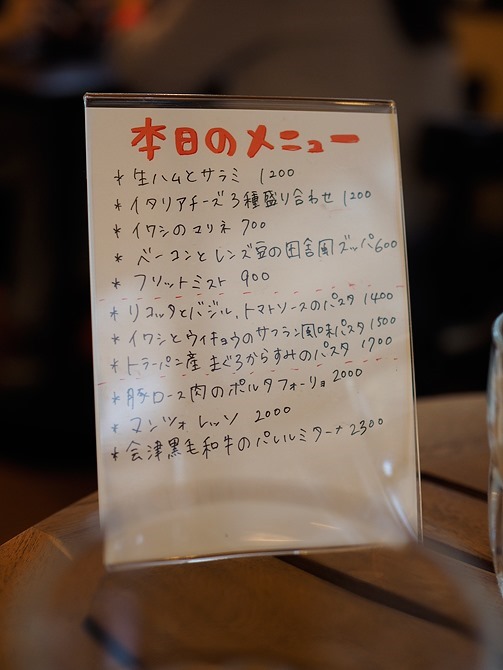 本日のメニュー
* 生ハムとサラミ 1200
* イタリアチーズ3種盛り合わせ 1200
* イワシのコリネ 700
* ベーコンとレンズ豆の田舎風ズッパ600
* フリットミスト 900
* リコッタとバジル,トマトソースのパスタ 1400
* イワシとウイキョウのサフラン風味パスタ 1500
* トラーパニ産 まぐろからすみのパスタ 1700
* 豚ロース肉のポルタフォーリョ 2000
* マンツォ レッソ 2000
* 会津黒毛和牛のパレルミターナ 2300